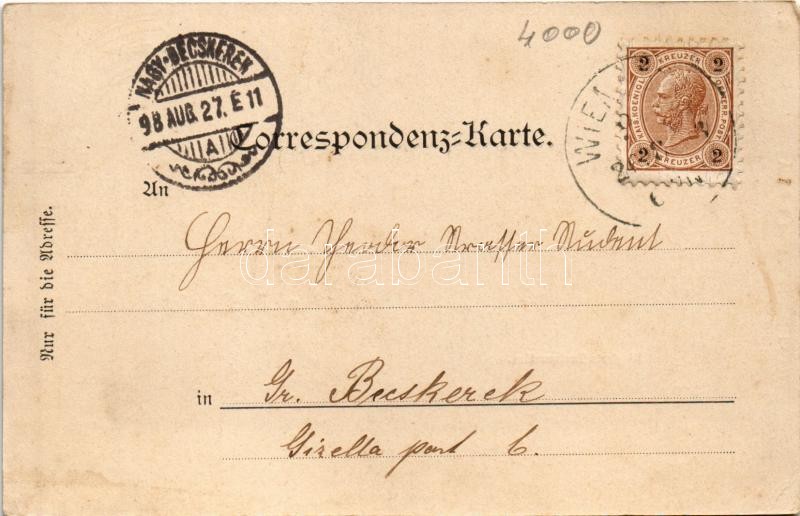 4000
NAGY-BECSKEREK
98 AUG. 27. E 11
A
WIEN
2 KREUZER 2
KAIS. KOENIGL. OESTERR. POST
2 KREUZER 2
Correspondenz-Karte.
An
Herrn Theodor Strasser Student
darabanth
in Gr. Becskerek
Gizella part 6.
Nur für die Adresse.